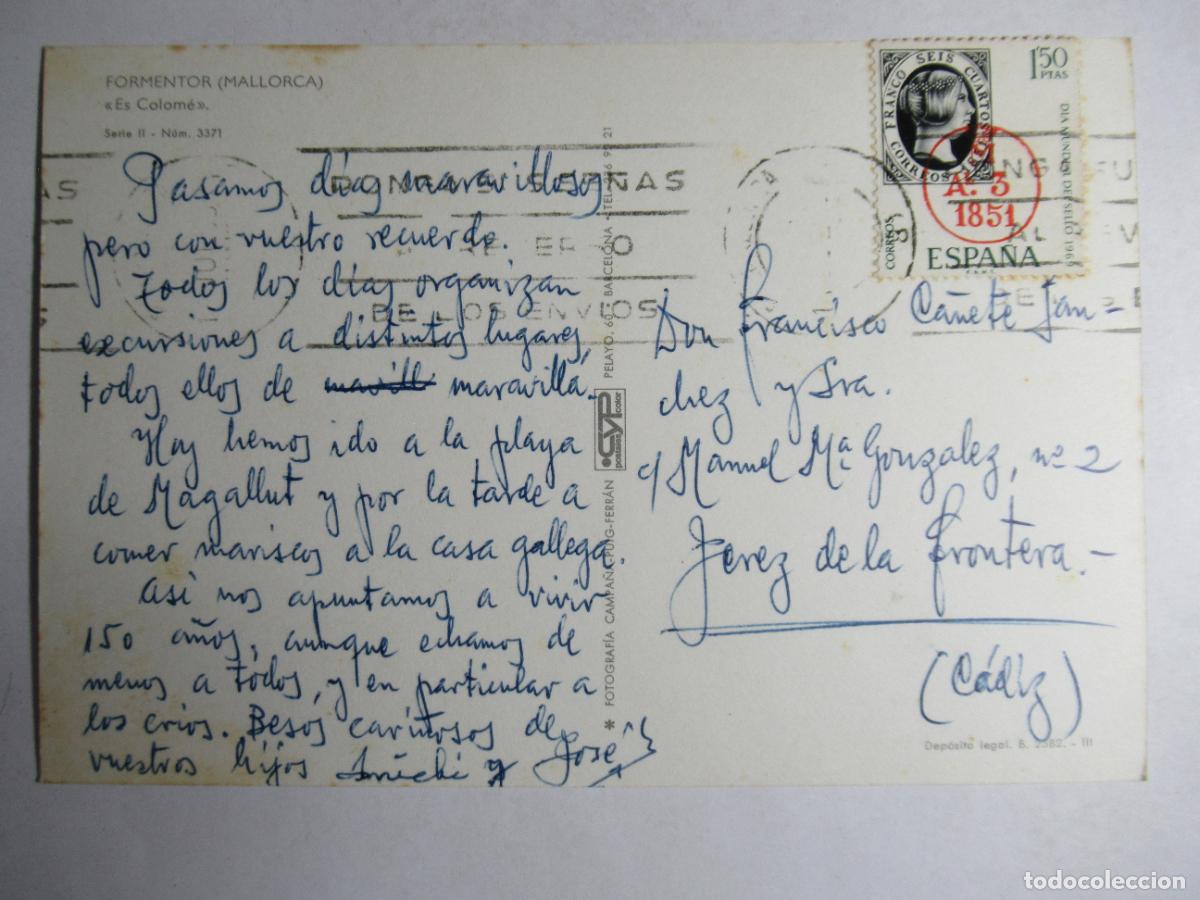 FORMENTOR (MALLORCA)
«Es Colomé».
Serie II - Núm. 3371
Pasamos días maravillosos
pero con vuestro recuerdo.
Todos los días organizan
excursiones a distintos lugares,
todos ellos de maravilla.
Hoy hemos ido a la playa
de Magallut y por la tarde a
comer mariscos a la casa gallega.
Así nos apuntamos a vivir
150 años, aunque echamos de
menos a todos, y en particular a
los crios. Besos cariñosos de
vuestros hijos y José
✻ FOTOGRAFÍA CAMPAÑÁ-PUIG-FERRÁN
CYP
postales color
PELAYO, 60 - BARCELONA -
FRANCO SEIS CUARTOS
CORREOS 1851
1'50
PTAS
DIA MUNDIAL DEL SELLO 1969
A. 3
1851
CORREOS
ESPAÑA
F.N.M.T.
SEÑAS
DE LOS ENVIOS
Don Francisco Cañete San-
chez y Sra.
c/ Manuel Mª Gonzalez, nº 2
Jerez de la Frontera.-
(Cádiz)
Depósito legal. B. 2582. - III
todocoleccion